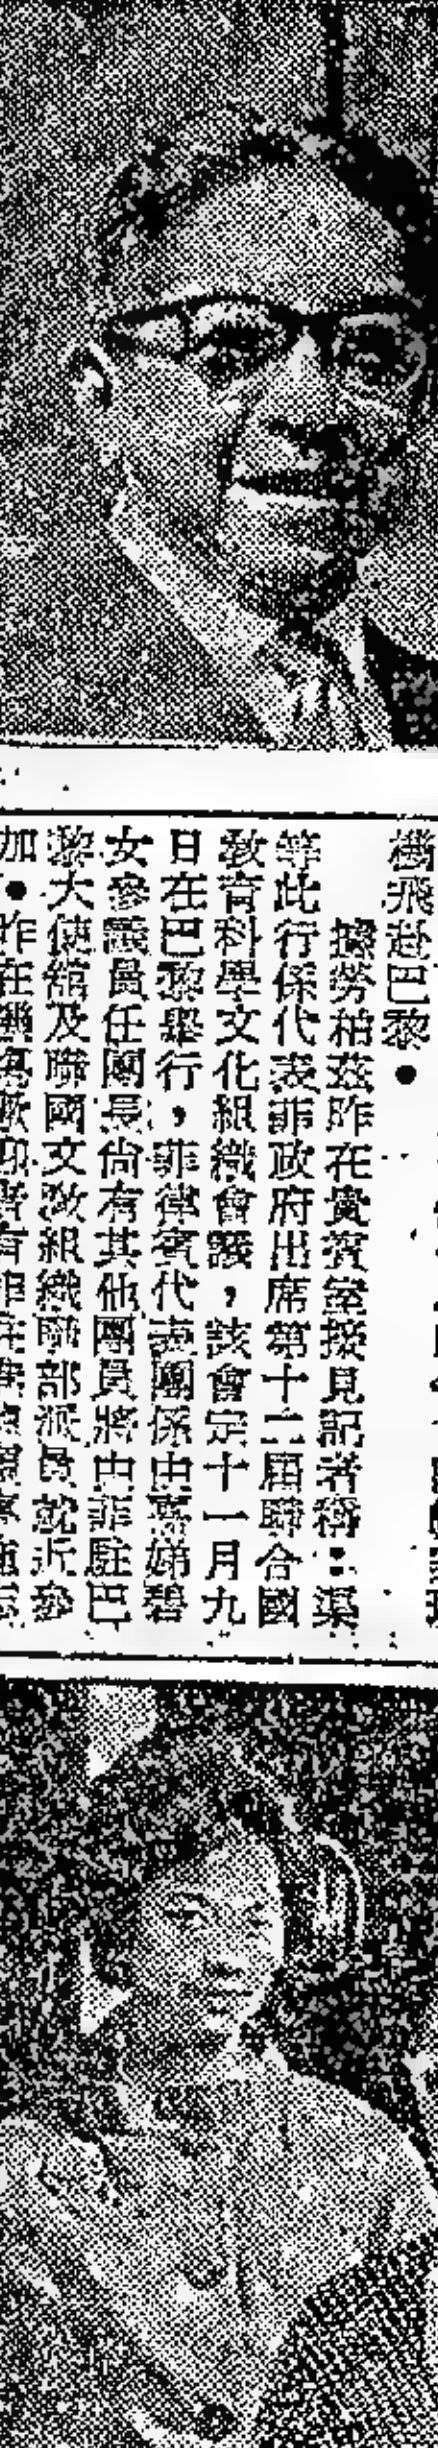 機飛赴巴黎●
據勞柏茲昨在貴賓室接見記者稱：渠
等此行係代表菲政府出席第十二屆聯合國
敎育科學文化組織會議，該會定十一月九
日在巴黎舉行，菲律賓代表團係由嘉娣碧
女參議員任團長尙有其他團員將由菲駐巴
黎大使館及聯國文敎組織聯部派員就近參
加●昨在機塲歡迎者有菲